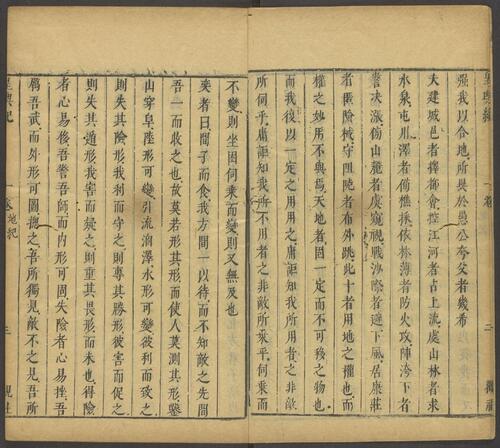 強我以合地所與於愚公夸父者幾希
夫建城邑者擇都會控江河者占上流處山林者求
水泉屯川澤者備樵採依林薄者防火攻陣洿下者
決漲傷山施者虞窺視戰沙磧者避下風居康莊
者匿險械守阻阨者布外跳此十者用地之權也而
權之妙用不與焉天地者固一定而不可移之物也
而我復以一定之用用之庸詎知我所用者之非敵
所伺乎庸詎知我所不用者之非敵所乘乎伺乘而
不變則坐困伺乘而變則又無及也
奕者日間子而食我方間一以待而不知敵之先間
吾一而收之也故莫若形其形而使人莫測其形鑿
山穿阜陸形可變引流瀦澤水形可變彼利而致之
則失其險形我利而守之則專其勝形彼害而促之
則失其遁形我害而疑之則重其畏形而未也得險
者心易後吾警吾師而內形可固失險者心易挫吾
礪吾武而外形可圖揔之吾所獨見敵不之見吾所